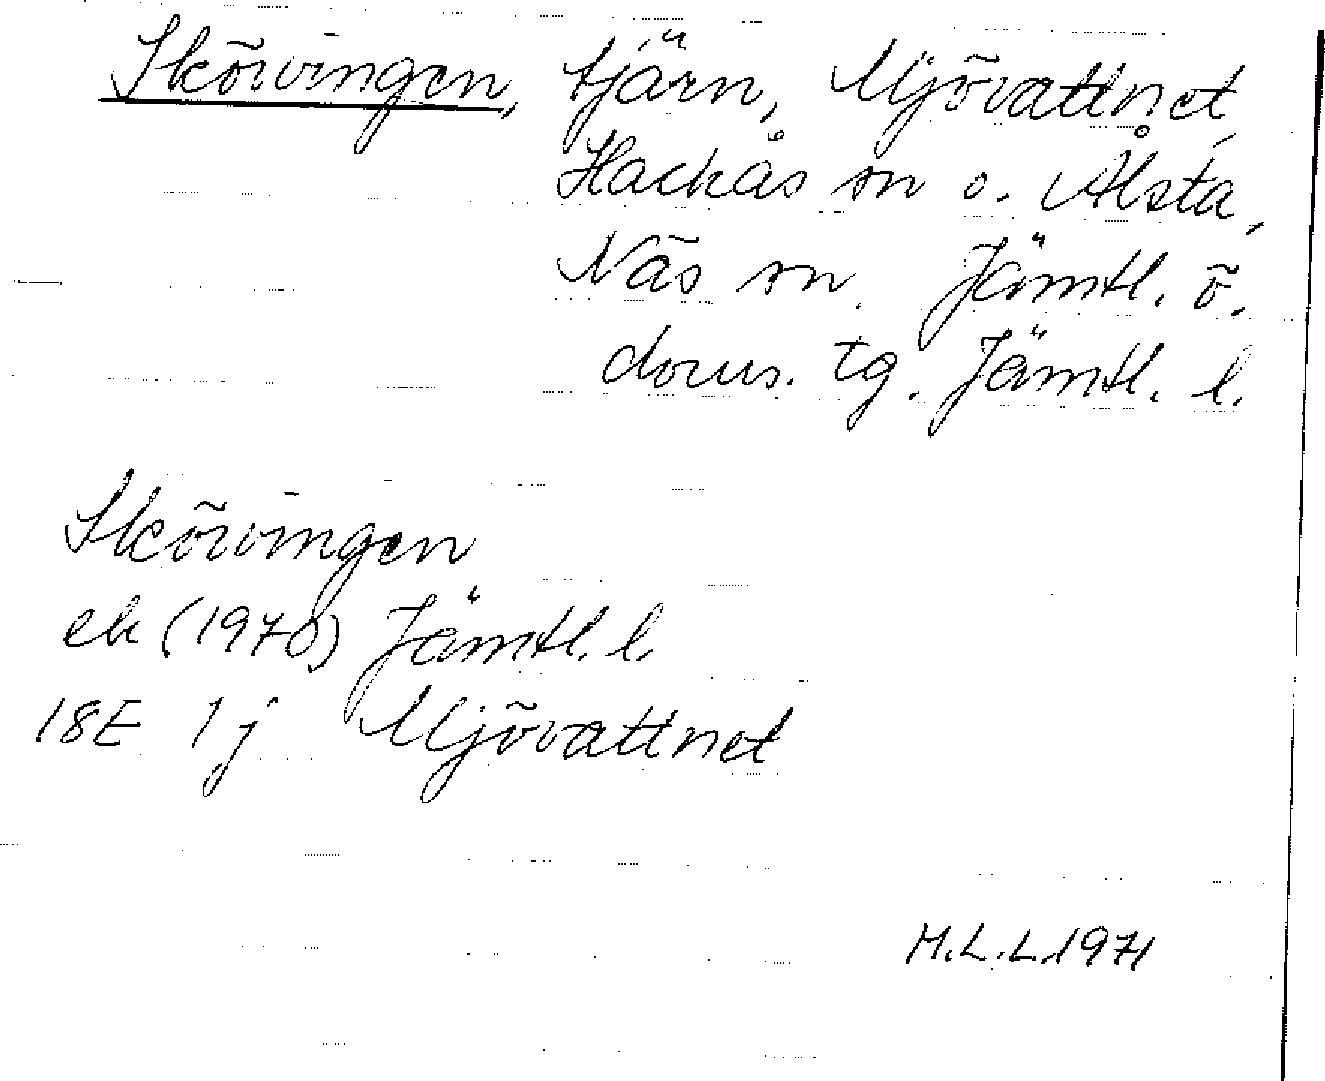 Skörvingen, tjärn, Mjövattnet,
Hackås sn o. Ålsta,
Näs sn. Jämtl. ö.
doms. tg. Jämtl. l.
Skörvingen
ek (1970) Jämtl. l.
18E 1j Mjövattnet
M.L.L. 1971